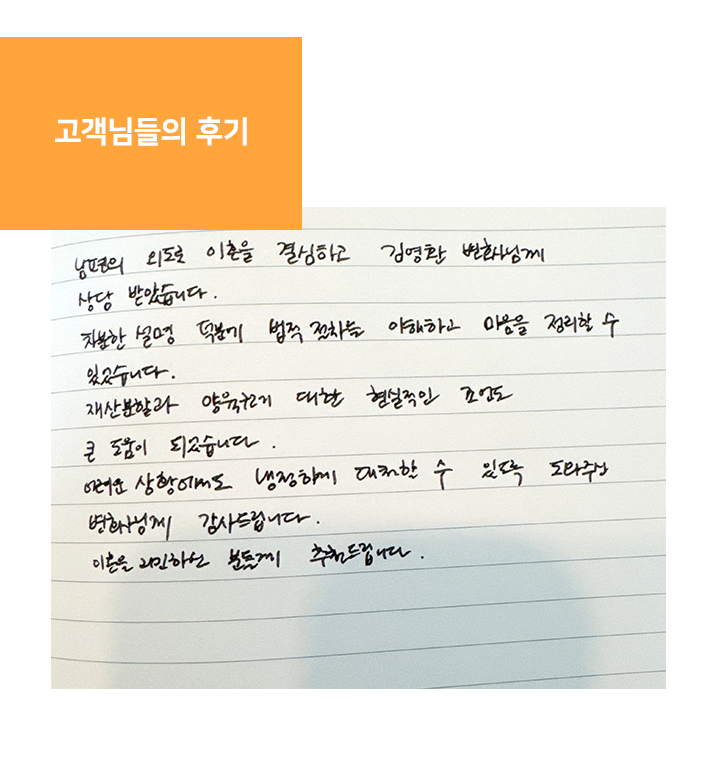 고객님들의 후기
남편의 외도로 이혼을 결심하고 김영환 변호사님께
상담 받았습니다.
차분한 설명 덕분에 법적 절차를 이해하고 마음을 정리할 수
있었습니다.
재산분할과 양육권에 대한 현실적인 조언도
큰 도움이 되었습니다.
어려운 상황에서도 냉정하게 대처할 수 있도록 도와주신
변호사님께 감사드립니다.
이혼을 고민하는 분들께 추천드립니다.